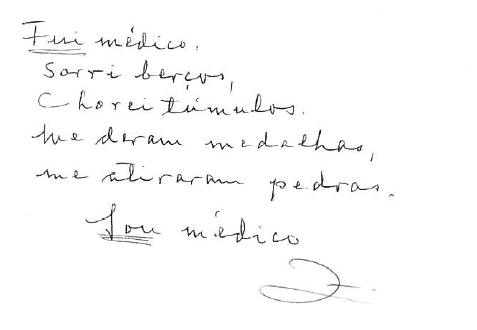 Fui médico.
Sorri berços,
Chorei túmulos.
me deram medalhas,
me atiraram pedras.
Sou médico